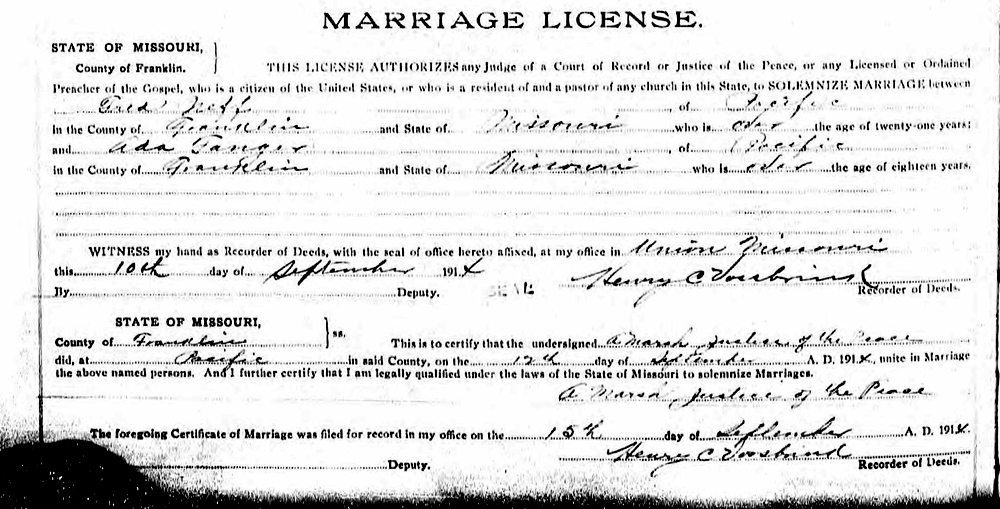 MARRIAGE LICENSE.
STATE OF MISSOURI,
County of Franklin.
THIS LICENSE AUTHORIZES any Judge of a Court of Record or Justice of the Peace, or any Licensed or Ordained
Preacher of the Gospel, who is a citizen of the United States, or who is a resident of and a pastor of any church in this State, to SOLEMNIZE MARRIAGE between
Fred Neff, of Pacific
in the County of Franklin and State of Missouri who is over the age of twenty-one years;
and Ada, of Pacific
in the County of Franklin and State of Missouri who is over the age of eighteen years.
WITNESS my hand as Recorder of Deeds, with the seal of office hereto affixed, at my office in Union Missouri
this 10th day of September 1914 Henry C
By Deputy. SEAL Recorder of Deeds.
STATE OF MISSOURI,
County of Franklin ss. This is to certify that the undersigned A Marsh Justice of the Peace
did, at Pacific in said County, on the 12th day of September A. D. 1914, unite in Marriage
the above named persons. And I further certify that I am legally qualified under the laws of the State of Missouri to solemnize Marriages.
A Marsh, Justice of the Peace
The foregoing Certificate of Marriage was filed for record in my office on the 15th day of September A. D. 1914.
Henry C
Deputy. Recorder of Deeds.